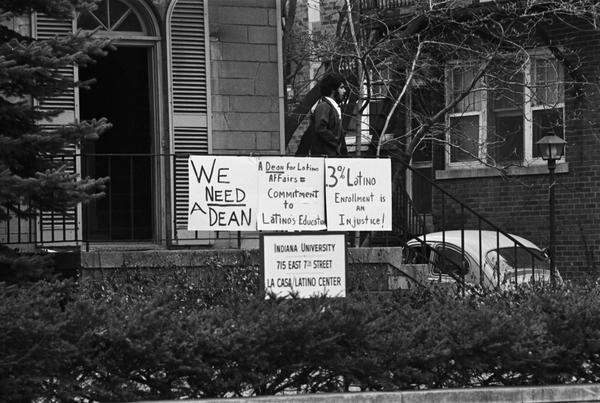 WE
NEED
A DEAN
A DEAN for LATINO
AFFairs =
Commitment
to
Latino's Education
.3% Latino
Enrollment is
an
Injustice!
INDIANA UNIVERSITY
715 EAST 7TH STREET
LA CASA LATINO CENTER